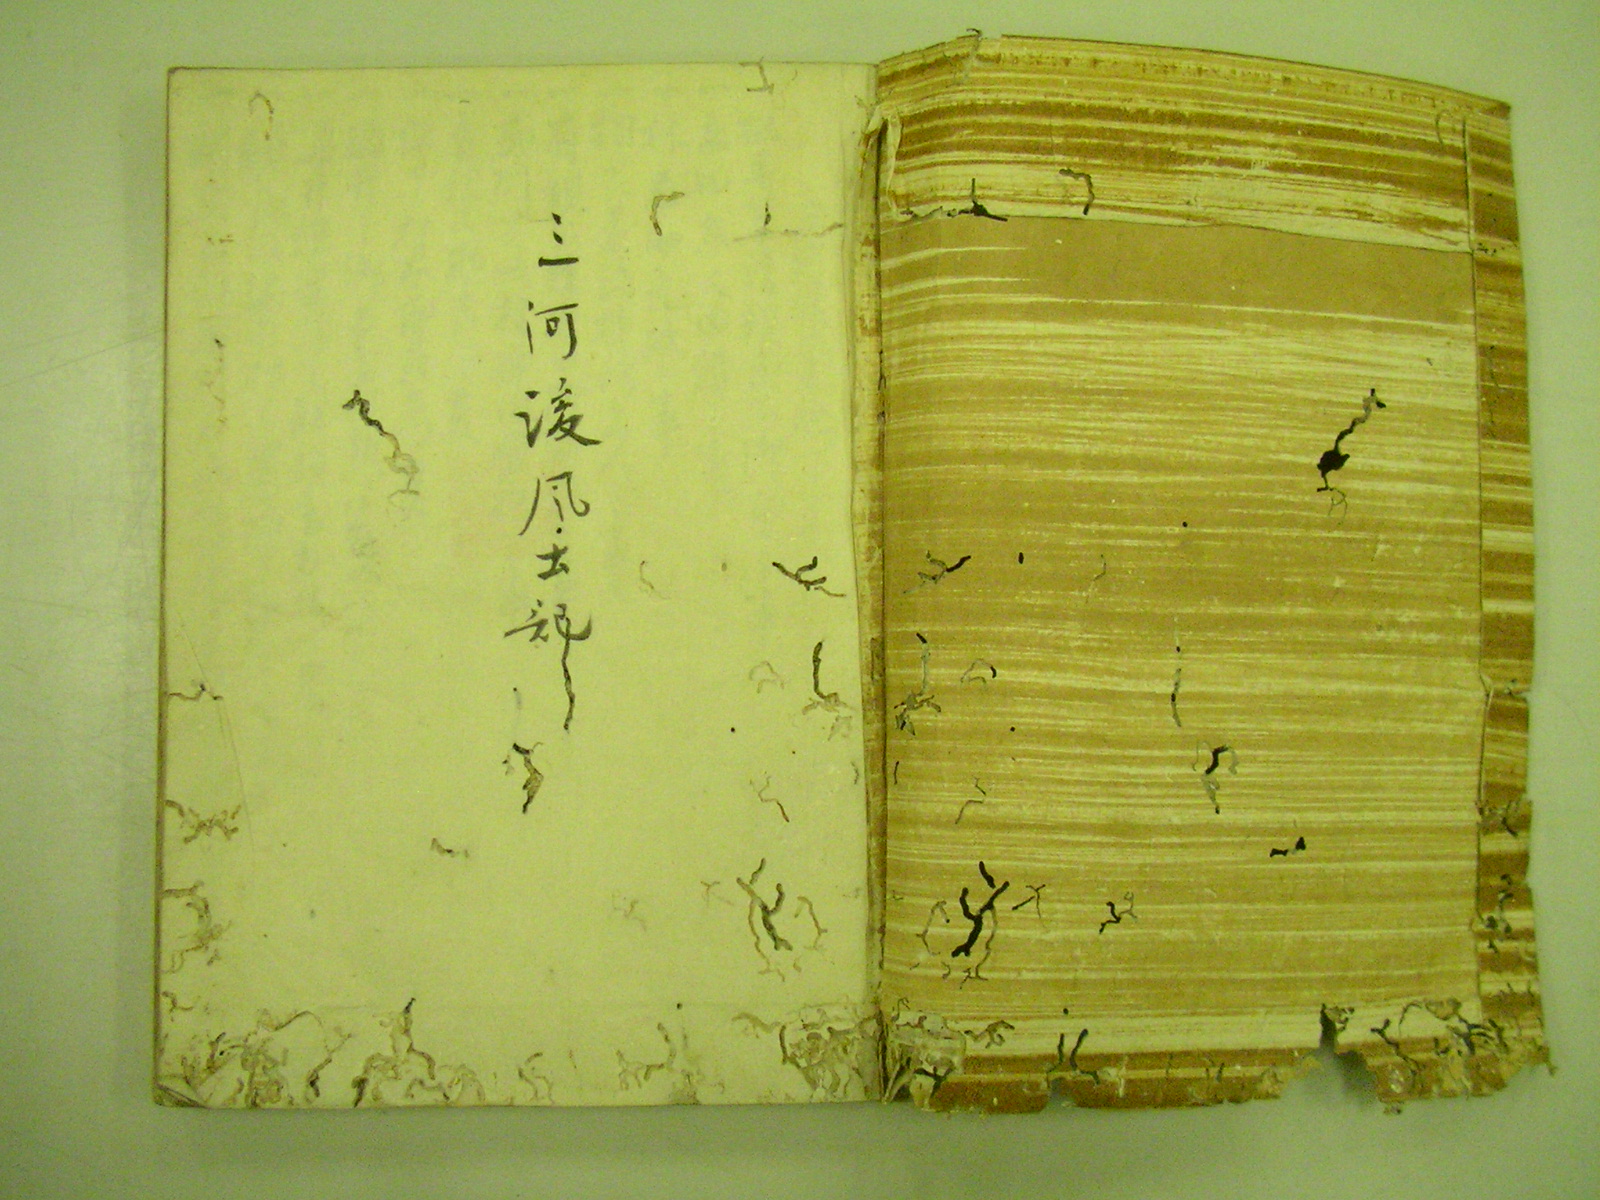 三河後風土記